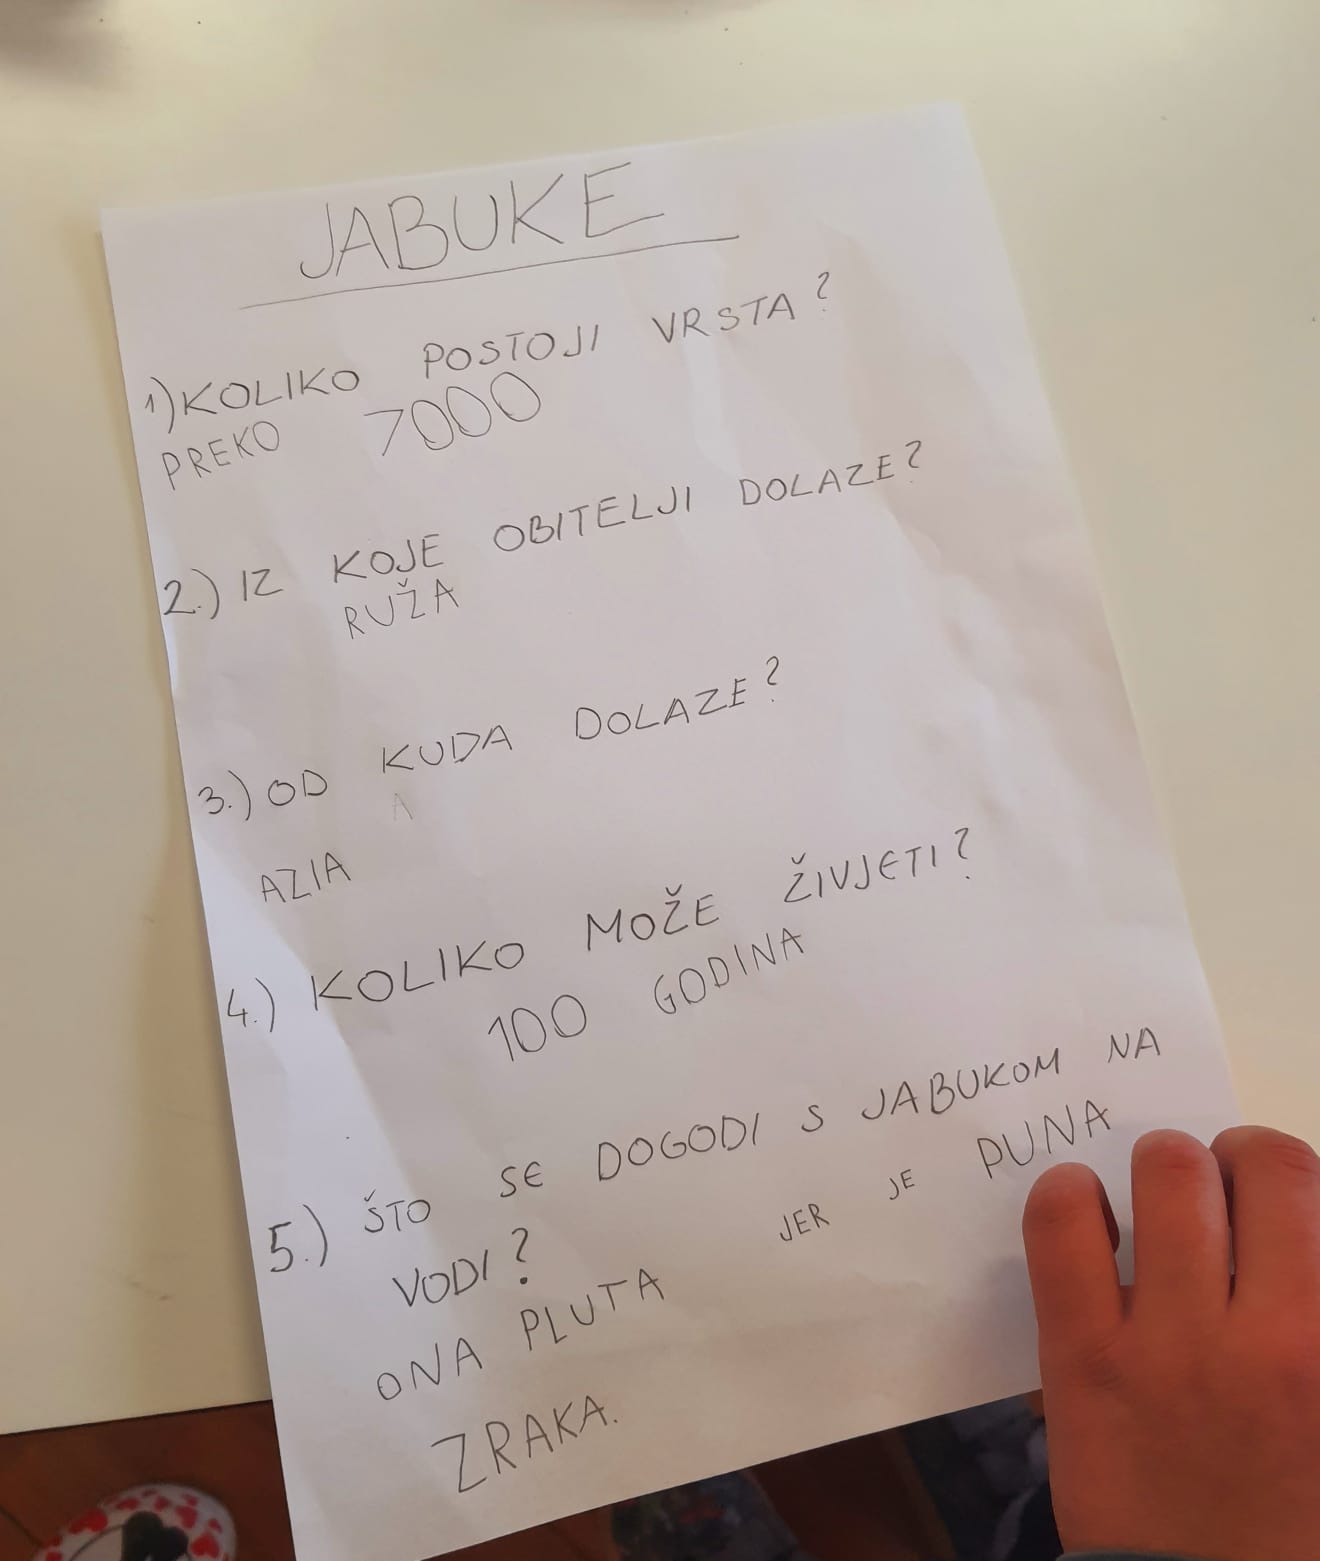 JABUKE
1) KOLIKO POSTOJI VRSTA?
PREKO 7000
2.) IZ KOJE OBITELJI DOLAZE?
RUŽA
3.) OD KUDA DOLAZE?
A
AZIA
4.) KOLIKO MOŽE ŽIVJETI?
100 GODINA
5.) ŠTO SE DOGODI S JABUKOM NA
VODI?
ONA PLUTA JER JE PUNA
ZRAKA.